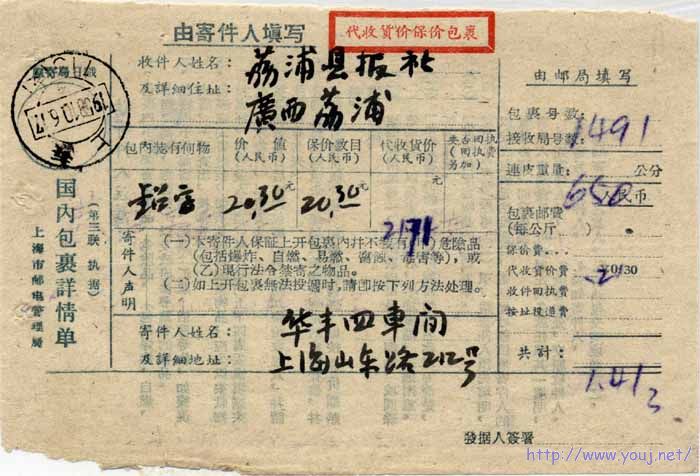 代收貨价保价包裹
由寄件人填写
收件人姓名：
及詳細住址：
荔浦县报社
廣西荔浦
包内裝有何物
价值
(人民币)
保价数目
(人民币)
代收貨价
(人民币)
铅字
20.30元
20.30元
元
2171
寄件人声明
(一)本寄件人保証上开包裹内并不裝有(甲)危險品
(包括爆炸、自燃、易燃、腐蝕、毒害等)，或
(乙)現行法令禁寄之物品。
(二)如上开包裹無法投遞时，請即按下列方法处理。
寄件人姓名：
及詳細地址：
华丰四車间
上海山东路212号
由邮局填写
包裹号数：
接收局号数：
1491
連皮重量：
公分
650
人民币
包裹邮費
(每公斤
保价費
代收貨价費
2
0.30
收件回执費
按址投遞費
共計：
1.41
發据人簽署
国内包裹詳情单
(第三联 执据)
上海市邮电管理局
上海
http://www.youj.net/